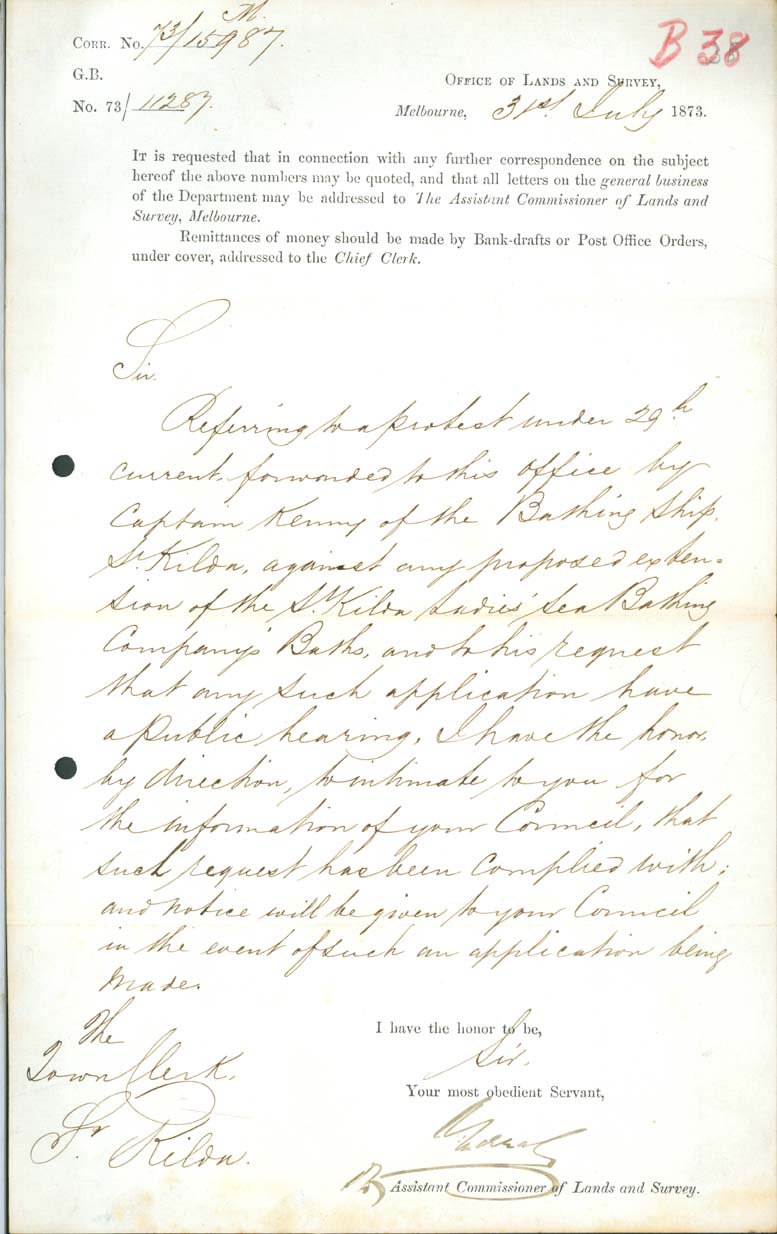 M.
CORR. No. 73/15987.
B 38
G.B.
OFFICE OF LANDS AND SURVEY,
No. 73/11287.
Melbourne, 31st July 1873.
IT is requested that in connection with any further correspondence on the subject
hereof the above numbers may be quoted, and that all letters on the general business
of the Department may be addressed to The Assistant Commissioner of Lands and
Survey, Melbourne.
Remittances of money should be made by Bank-drafts or Post Office Orders,
under cover, addressed to the Chief Clerk.
Sir.
Referring to a protest under 29th
current, forwarded to this office by
Captain Kenny of the Bathing Ship,
St. Kilda, against any proposed exten=
sion of the St. Kilda Ladies' Sea Bathing
Company's Baths, and to his request
that any such application have
a public hearing, I have the honor,
by direction, to intimate to you for
the information of your Council, that
such request has been complied with;
and notice will be given to your Council
in the event of such an application being
made.
I have the honor to be,
Sir.
Your most obedient Servant,
Assistant Commissioner of Lands and Survey.
The
Town Clerk.
St Kilda.